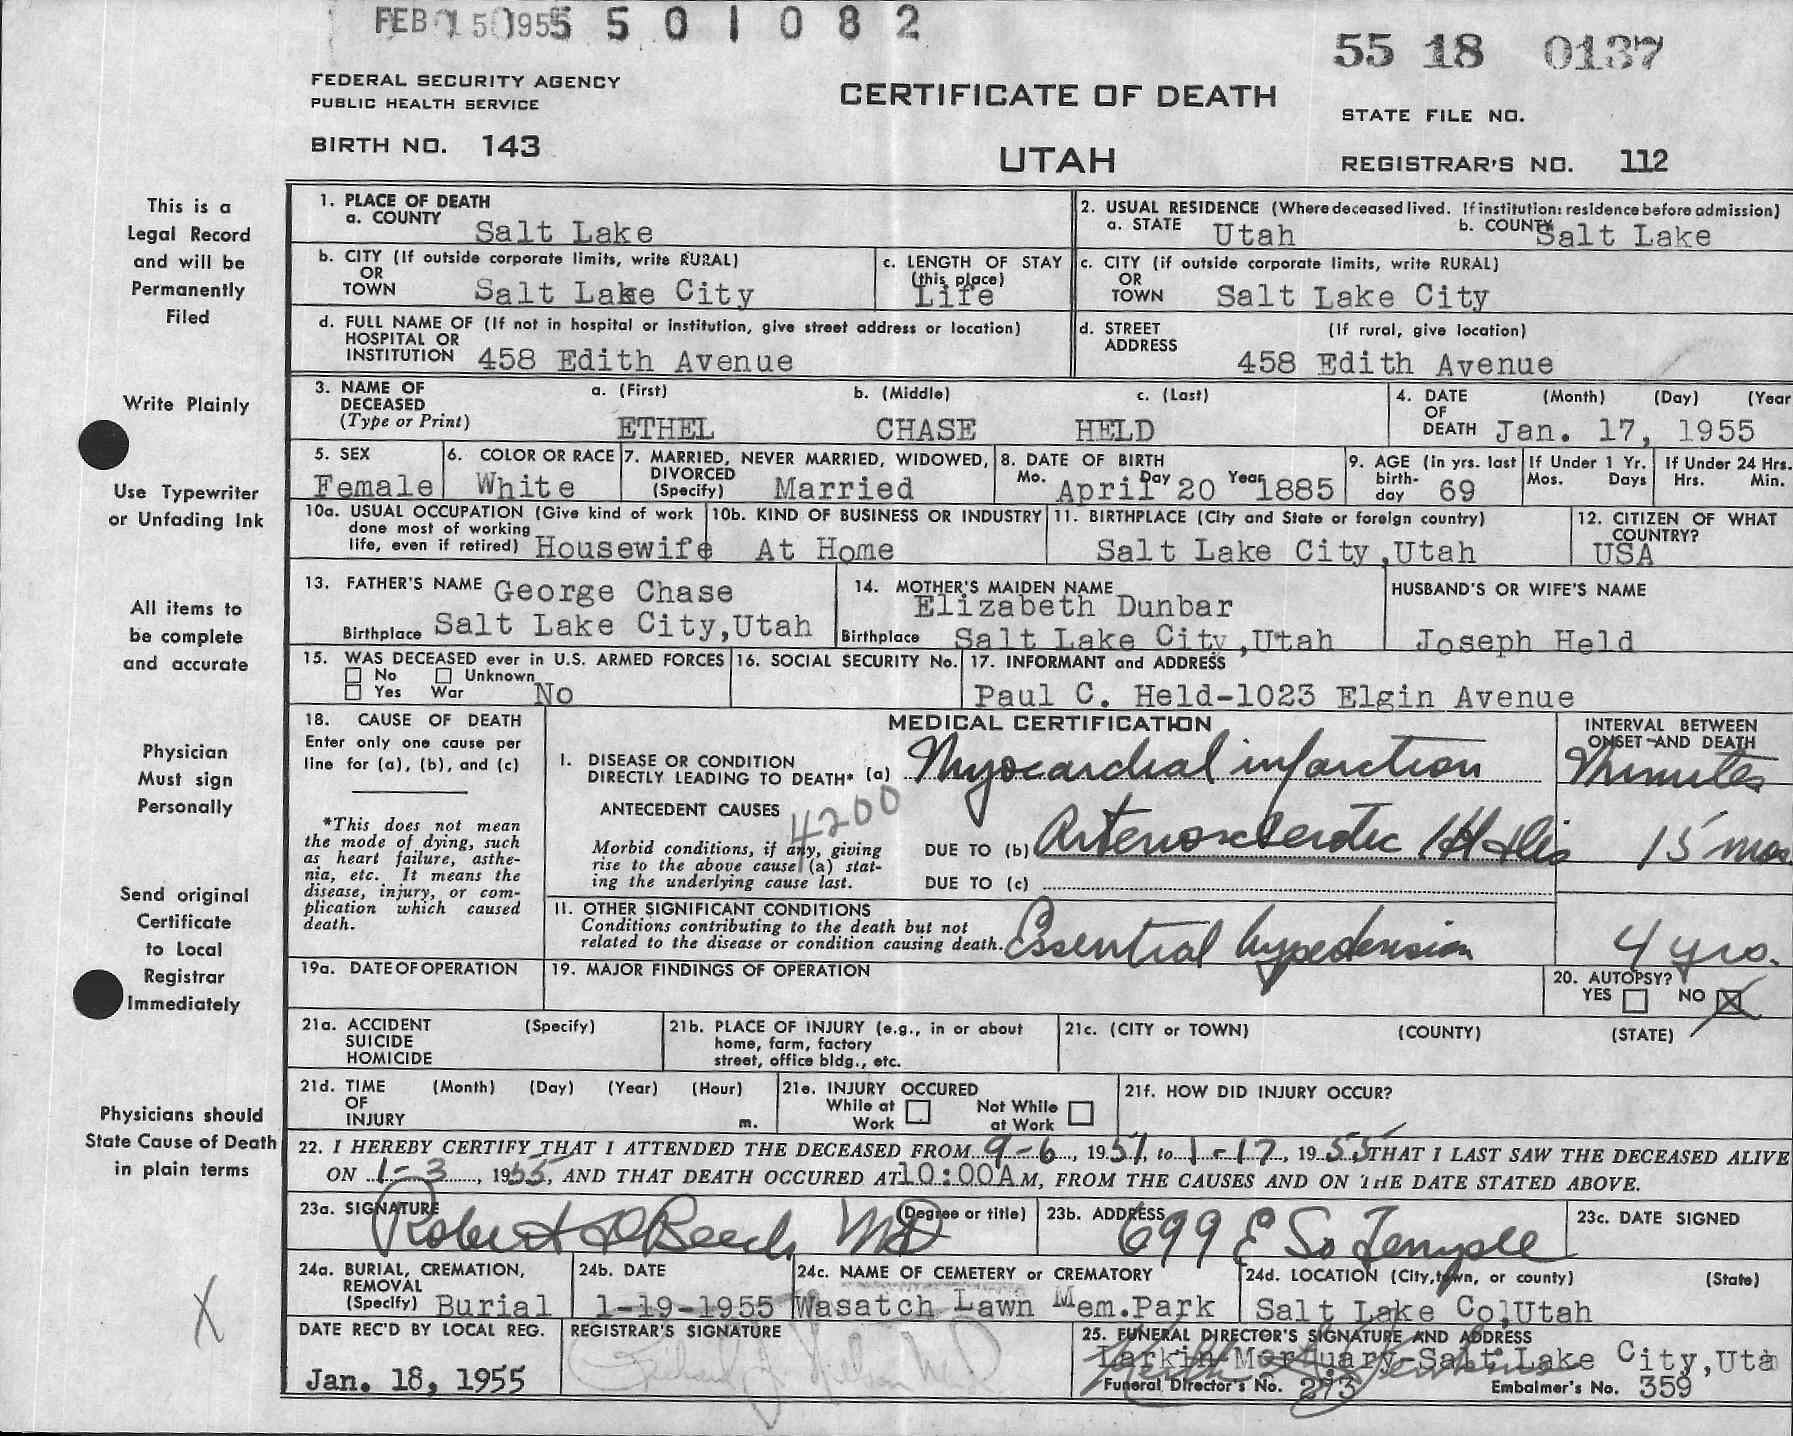 FEB 15 1955 5 5 0 1 0 8 2
55 18 0137
FEDERAL SECURITY AGENCY
PUBLIC HEALTH SERVICE
BIRTH NO. 143
CERTIFICATE OF DEATH
UTAH
STATE FILE NO.
REGISTRAR'S NO. 112
This is a
Legal Record
and will be
Permanently
Filed
Write Plainly
Use Typewriter
or Unfading Ink
All items to
be complete
and accurate
Physician
Must sign
Personally
Send original
Certificate
to Local
Registrar
Immediately
Physicians should
State Cause of Death
in plain terms
1. PLACE OF DEATH
a. COUNTY Salt Lake
2. USUAL RESIDENCE (Where deceased lived. If institution: residence before admission)
a. STATE Utah b. COUNTY Salt Lake
b. CITY (If outside corporate limits, write RURAL)
OR
TOWN Salt Lake City
c. LENGTH OF STAY
(this place)
Life
c. CITY (if outside corporate limits, write RURAL)
OR
TOWN Salt Lake City
d. FULL NAME OF (If not in hospital or institution, give street address or location)
HOSPITAL OR
INSTITUTION 458 Edith Avenue
d. STREET (If rural, give location)
ADDRESS
458 Edith Avenue
3. NAME OF a. (First) b. (Middle) c. (Last)
DECEASED
(Type or Print) ETHEL CHASE HELD
4. DATE (Month) (Day) (Year
OF
DEATH Jan. 17, 1955
5. SEX
Female
6. COLOR OR RACE
White
7. MARRIED, NEVER MARRIED, WIDOWED,
DIVORCED
(Specify) Married
8. DATE OF BIRTH
Mo. April Day 20 Year 1885
9. AGE (in yrs. last
birth-
day 69
If Under 1 Yr.
Mos. Days
If Under 24 Hrs.
Hrs. Min.
10a. USUAL OCCUPATION (Give kind of work
done most of working
life, even if retired) Housewife
10b. KIND OF BUSINESS OR INDUSTRY
At Home
11. BIRTHPLACE (City and State or foreign country)
Salt Lake City,Utah
12. CITIZEN OF WHAT
COUNTRY?
USA
13. FATHER'S NAME George Chase
Birthplace Salt Lake City,Utah
14. MOTHER'S MAIDEN NAME
Elizabeth Dunbar
Birthplace Salt Lake City,Utah
HUSBAND'S OR WIFE'S NAME
Joseph Held
15. WAS DECEASED ever in U.S. ARMED FORCES
No Unknown
Yes War No
16. SOCIAL SECURITY No.
17. INFORMANT and ADDRESS
Paul C. Held-1023 Elgin Avenue
18. CAUSE OF DEATH
Enter only one cause per
line for (a), (b), and (c)
*This does not mean
the mode of dying, such
as heart failure, asthe-
nia, etc. It means the
disease, injury, or com-
plication which caused
death.
MEDICAL CERTIFICATION
INTERVAL BETWEEN
ONSET AND DEATH
I. DISEASE OR CONDITION
DIRECTLY LEADING TO DEATH* (a) Myocardial infarction Minutes
ANTECEDENT CAUSES
4200
Morbid conditions, if any, giving
rise to the above cause (a) stat-
ing the underlying cause last.
DUE TO (b) Arteriosclerotic Ht dis 15 mos
DUE TO (c)
II. OTHER SIGNIFICANT CONDITIONS
Conditions contributing to the death but not
related to the disease or condition causing death. Essential hypertension 4 yrs.
19a. DATE OF OPERATION
19. MAJOR FINDINGS OF OPERATION
20. AUTOPSY?
YES NO X
21a. ACCIDENT (Specify)
SUICIDE
HOMICIDE
21b. PLACE OF INJURY (e.g., in or about
home, farm, factory
street, office bldg., etc.
21c. (CITY or TOWN) (COUNTY) (STATE)
21d. TIME (Month) (Day) (Year) (Hour)
OF
INJURY m.
21e. INJURY OCCURED
While at Work Not While at Work
21f. HOW DID INJURY OCCUR?
22. I HEREBY CERTIFY THAT I ATTENDED THE DECEASED FROM 9-6, 1951, to 1-17, 1955 THAT I LAST SAW THE DECEASED ALIVE
ON 1-3, 1955, AND THAT DEATH OCCURED AT 10:00A M, FROM THE CAUSES AND ON THE DATE STATED ABOVE.
23a. SIGNATURE (Degree or title)
Robert D Beech MD
23b. ADDRESS
699 E So Temple
23c. DATE SIGNED
24a. BURIAL, CREMATION,
REMOVAL
(Specify) Burial
24b. DATE
1-19-1955
24c. NAME OF CEMETERY or CREMATORY
Wasatch Lawn Mem.Park
24d. LOCATION (City, town, or county) (State)
Salt Lake Co,Utah
X
DATE REC'D BY LOCAL REG.
Jan. 18, 1955
REGISTRAR'S SIGNATURE
25. FUNERAL DIRECTOR'S SIGNATURE AND ADDRESS
Larkin-Mortuary-Salt Lake City,Uta
Funeral Director's No. 273 Embalmer's No. 359